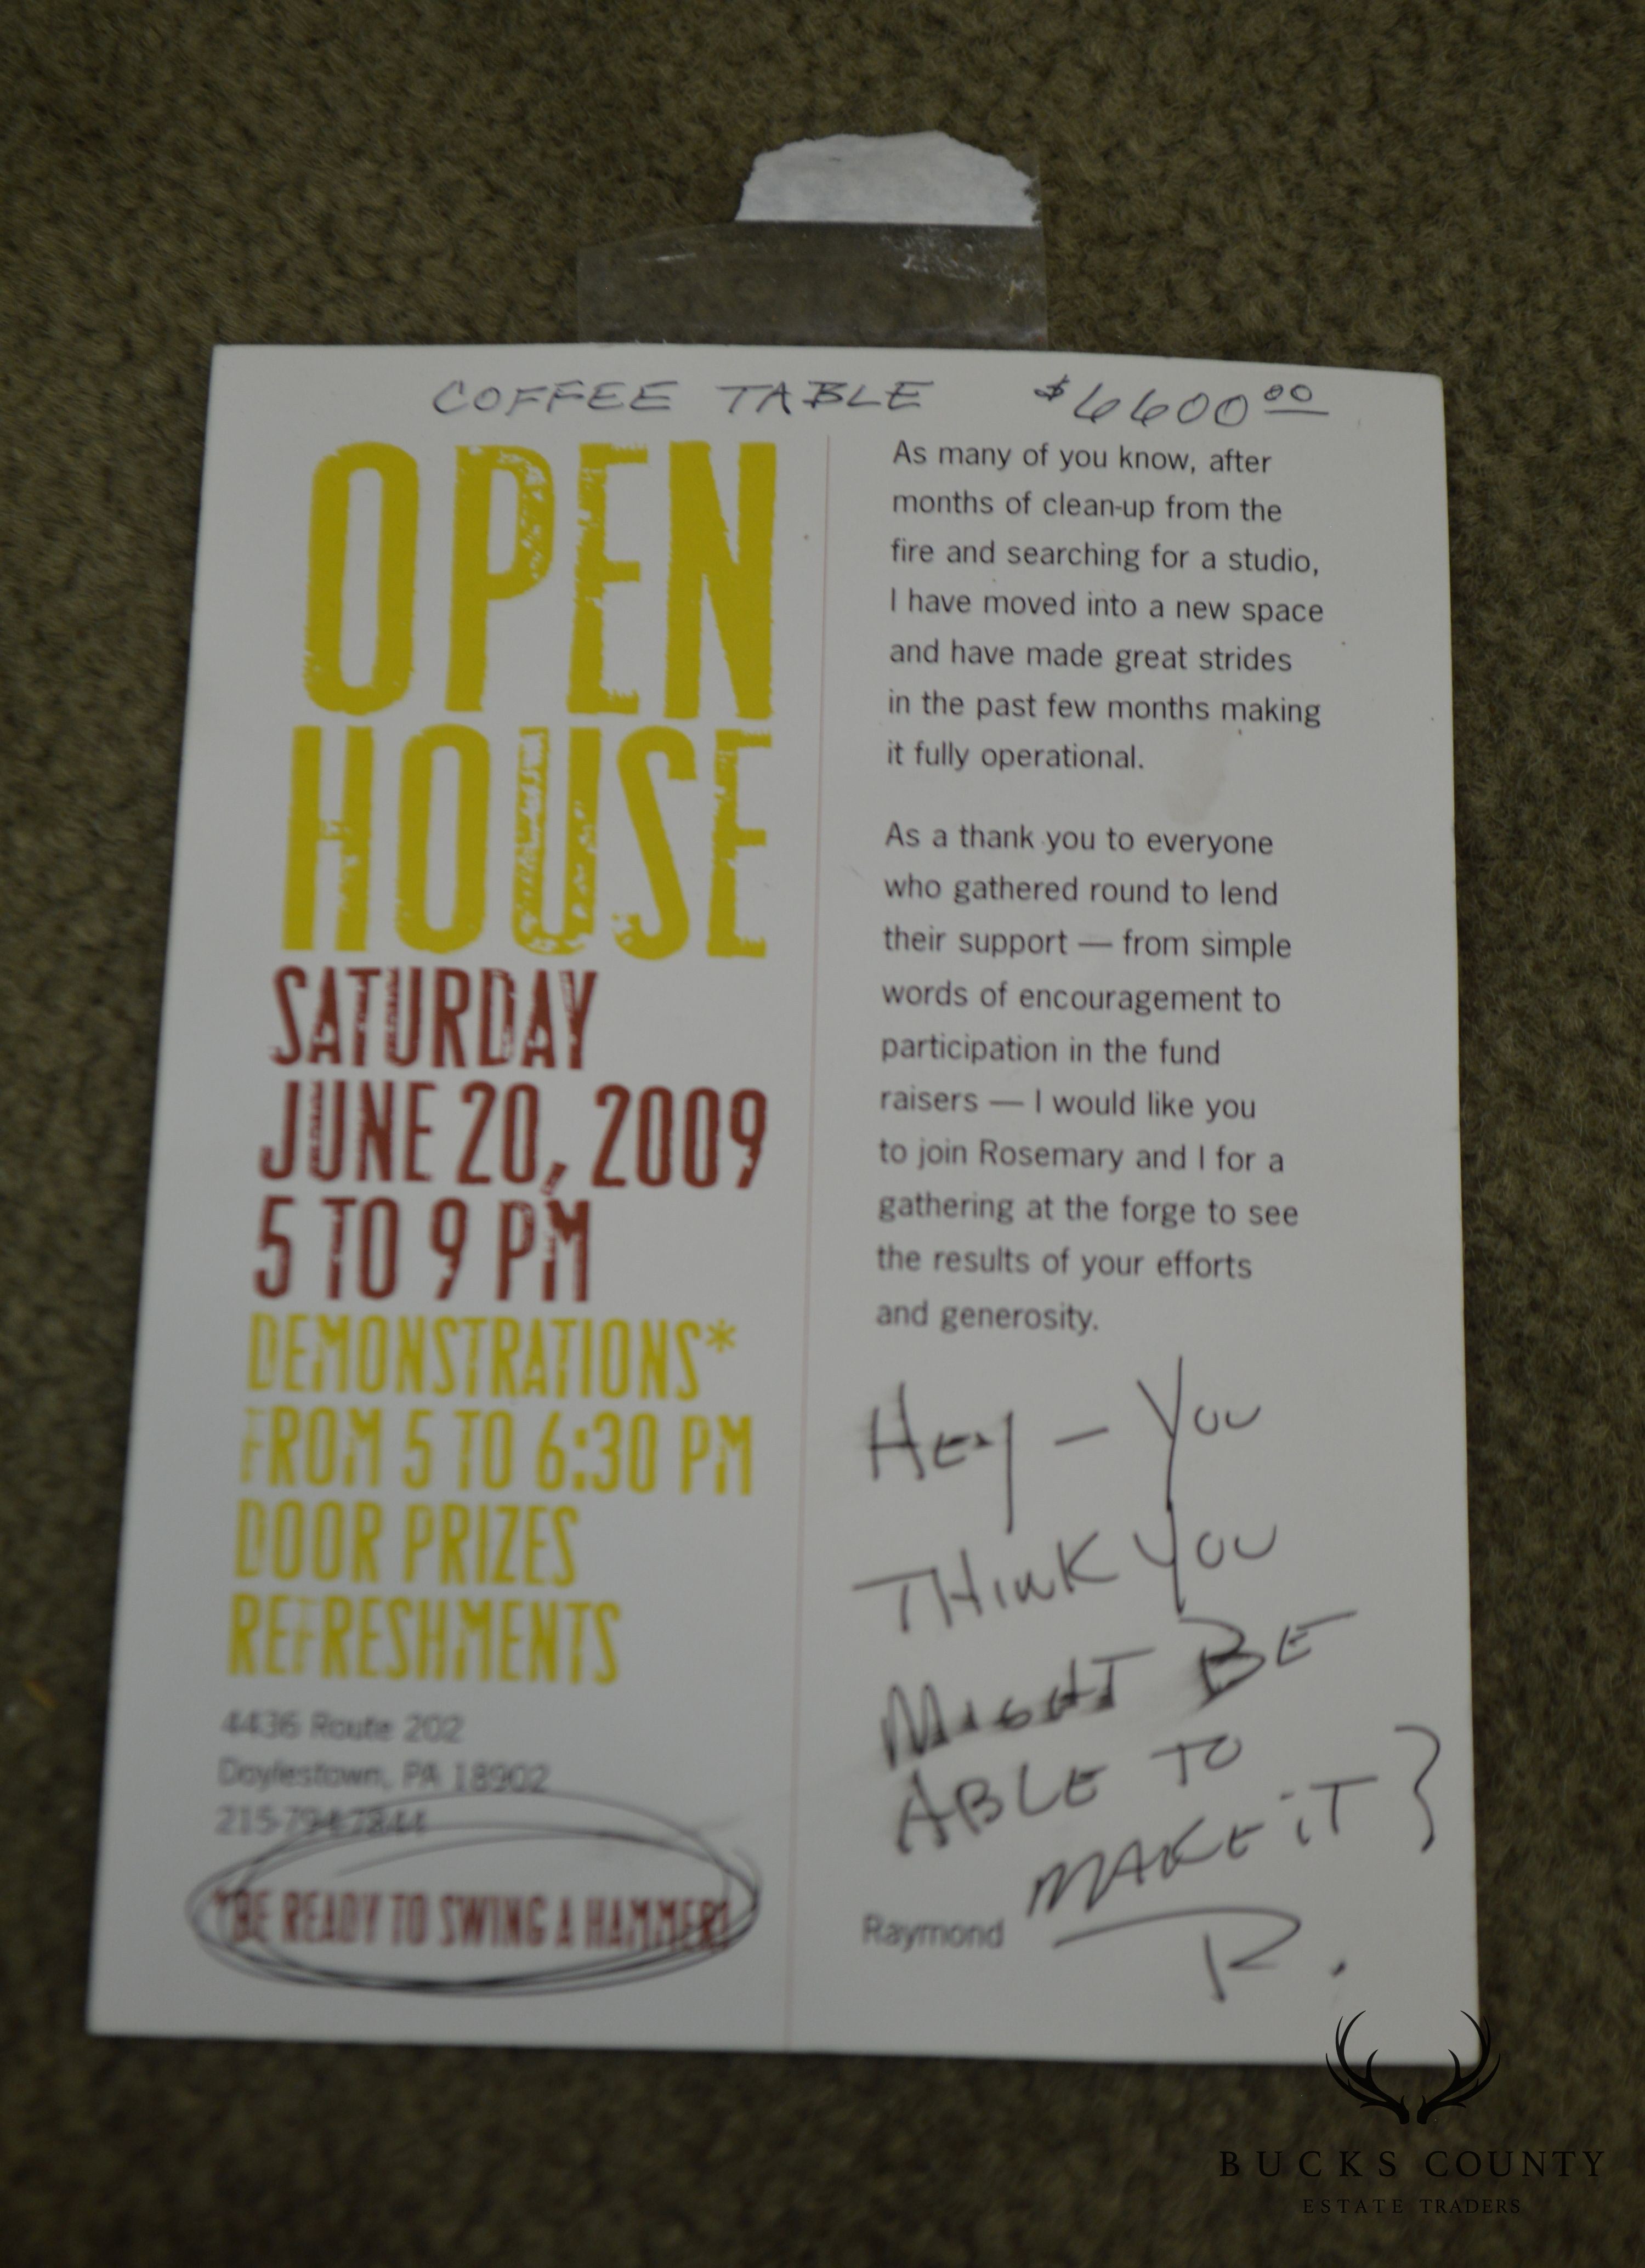 COFFEE TABLE $6600.00
OPEN
HOUSE
SATURDAY
JUNE 20, 2009
5 TO 9 PM
DEMONSTRATIONS*
FROM 5 TO 6:30 PM
DOOR PRIZES
REFRESHMENTS
4436 Route 202
Doylestown, PA 18902
215-794-7844
*BE READY TO SWING A HAMMER!
As many of you know, after
months of clean-up from the
fire and searching for a studio,
I have moved into a new space
and have made great strides
in the past few months making
it fully operational.
As a thank you to everyone
who gathered round to lend
their support — from simple
words of encouragement to
participation in the fund
raisers — I would like you
to join Rosemary and I for a
gathering at the forge to see
the results of your efforts
and generosity.
HEY – YOU
THINK YOU
MIGHT BE
ABLE TO
MAKE IT?
Raymond
R.
BUCKS COUNTY
ESTATE TRADERS